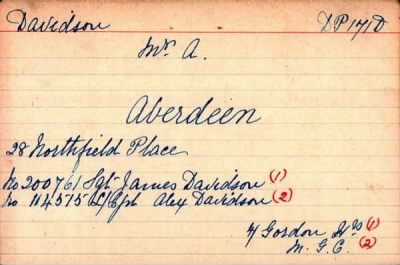 Davidson DP1710
Mr. A.
Aberdeen
28 Northfield Place
No 200761 Sgt James Davidson (1)
No 114575 L/Cpl Alex Davidson (2)
4/ Gordon Hrs (1)
M. G. C. (2)